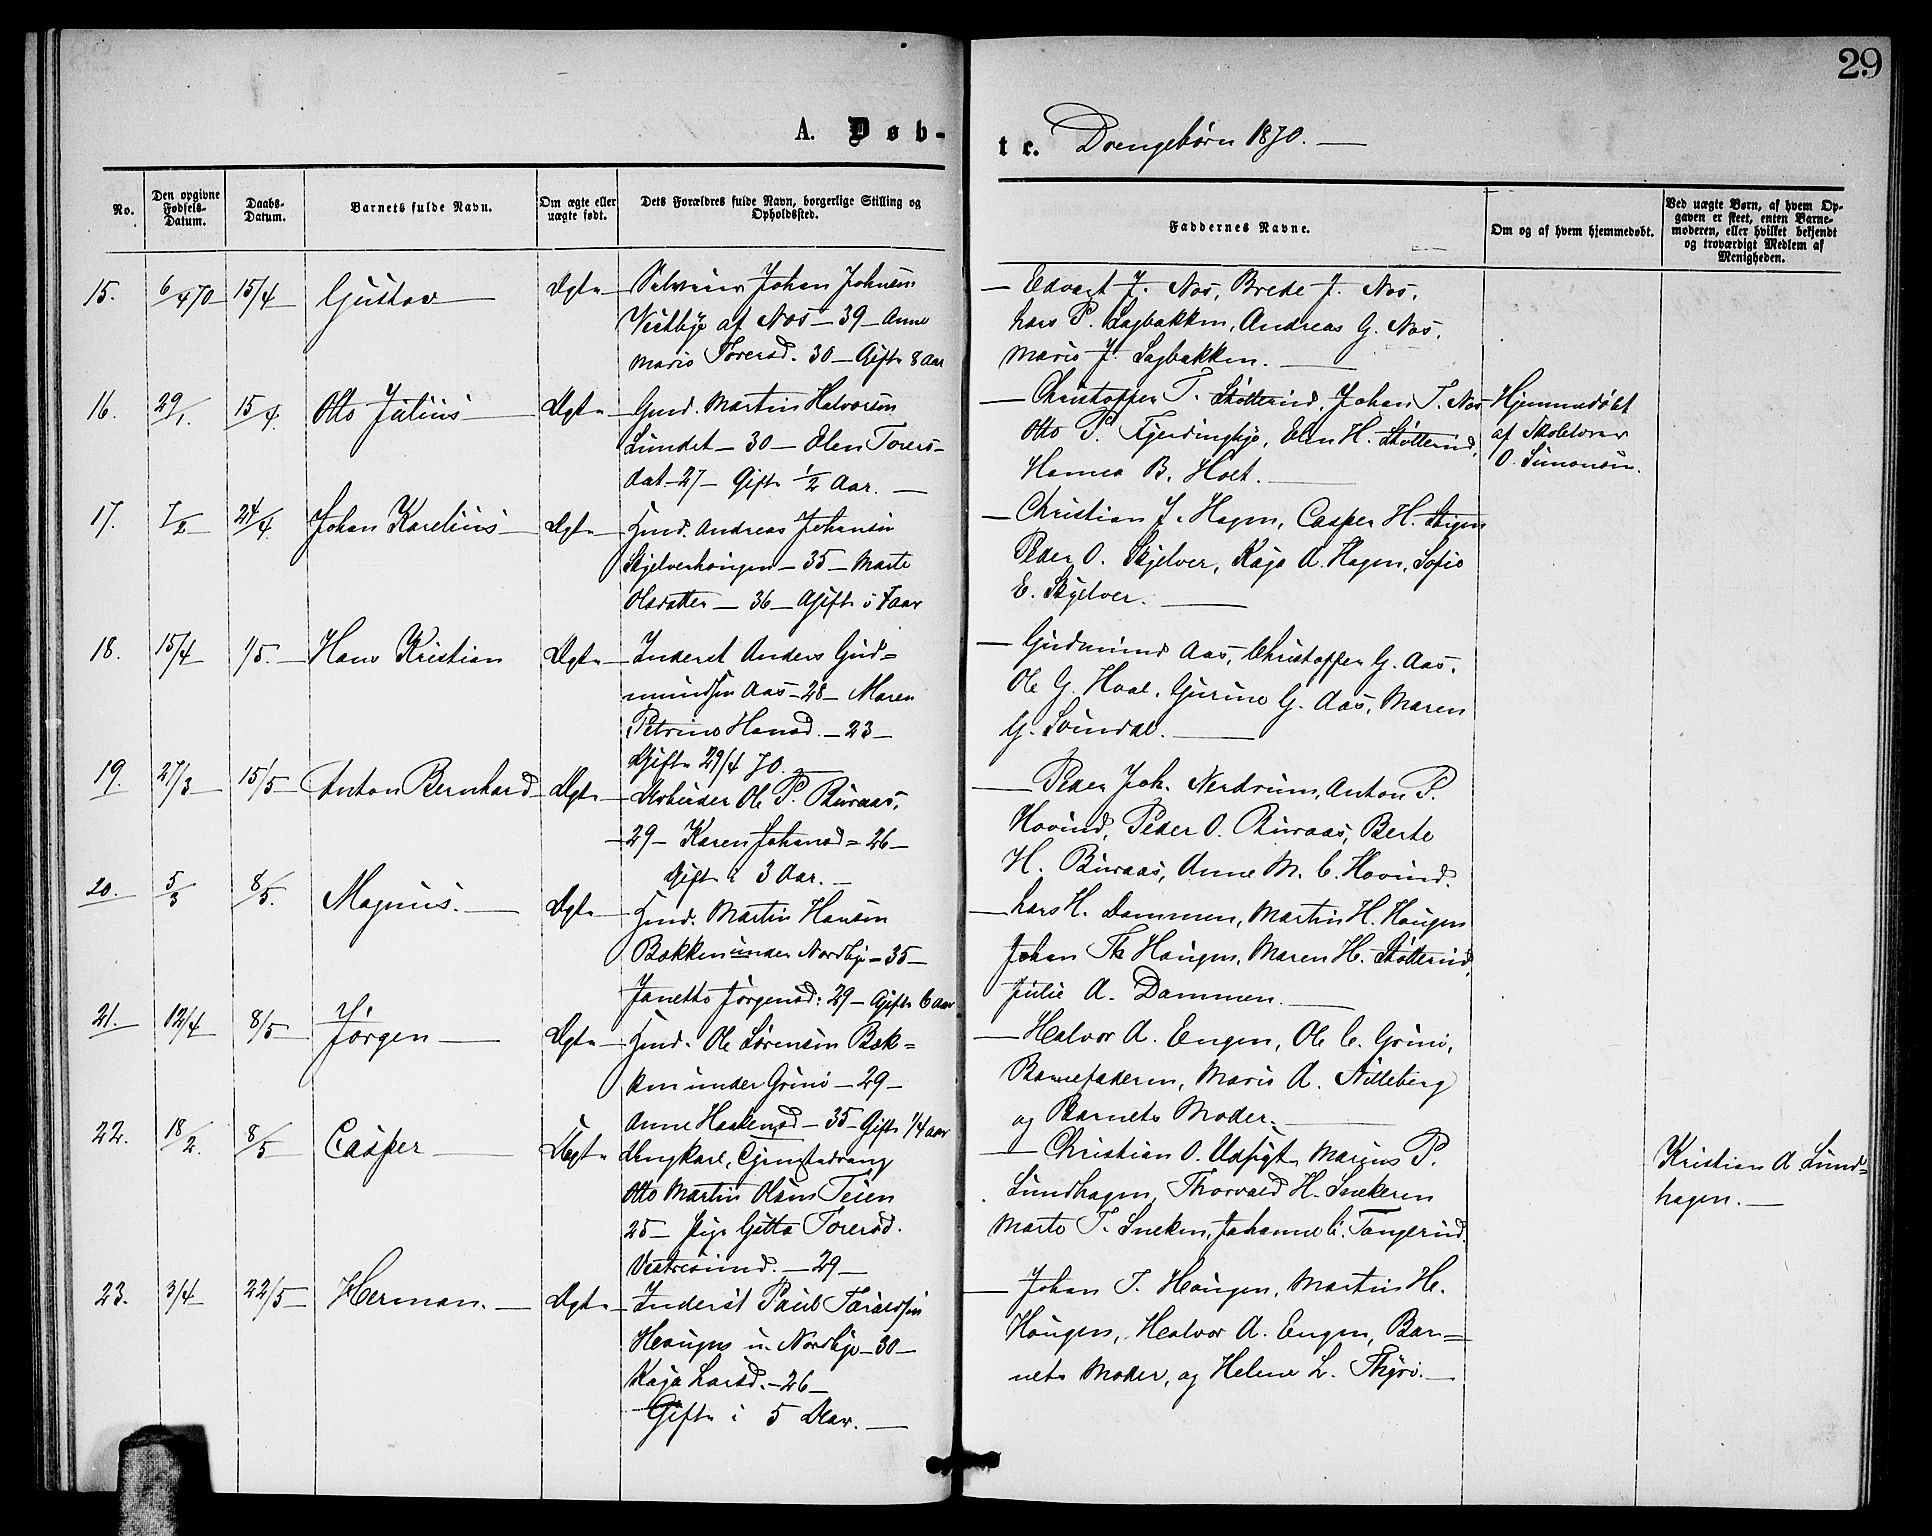 29
A. Døb-
te. Drengebørn 1870.
No.
Den opgivne Fødsels-Datum.
Daabs-Datum.
Barnets fulde Navn.
Om ægte eller uægte født.
Dets Forældres fulde Navn, borgerlige Stilling og Opholdssted.
Faddernes Navne.
Om og af hvem hjemmedøbt.
Ved uægte Børn, af hvem Opgaven er skeet, enten Barnemoderen, eller hvilket bekjendt og troværdigt Medlem af Menigheden.
15. 6/4 70 15/4 Gustav Ægte Selveier Johan Johnsen
Vestbye af Nos - 39 - Anne
Marie Torersd. 30 - Gifte 8 Aar
Edvart J. Nos, Brede J. Nos,
Lars P. Sagbakken, Andreas G. Nos,
Marie J. Sagbakken.
16. 29/1. 15/4. Otto Julius Ægte Gmd. Martin Halvorsen
Lundet - 30 - Elen Torers-
dat. - 27 - Gifte 1/2 Aar.
Christopher T. Skotterud, Johan T. Nos
Otto P. Fjerdingbye, Elen H. Skotterud,
Hanna B. Holt.
Hjemmedøbt
af Skolelærer
O. Simonsen.
17. 7/2 24/4. Johan Karelius Ægte Hmd. Andreas Johansen
Skjelverhougen - 35 - Marte
Olsdatter - 36 - Gifte i 7 aar
Christian J. Hagen, Casper H. Stigen
Peder O. Skjelver, Kaja A. Hagen, Sofie
E. Skjelver.
18. 15/4 1/5. Hans Kristian Ægte Inderst Anders Gud=
mundsen Aas - 28 - Maren
Petrine Hansd. - 23 -
Gifte 29/4 70.
Gudmund Aas, Christopher G. Aas,
Ole G. Hval, Gurine G. Aas, Maren
G. Svindal.
19. 27/3 15/5 Anton Bernhard Ægte Arbeider Ole P. Buraas,
- 29 - Karen Johansd = 26 -
Gifte i 3 Aar.
Peder Joh. Nerdrum, Anton P.
Hovind, Peder O. Buraas, Berte
H. Buraas, Anne M. C. Hovind.
20. 5/3 8/5. Magnus. Ægte Hmd. Martin Hansen
Bakken under Nordbye - 35 -
Janette Jørgensd: 29 - Gifte 6 aar
Lars H. Dammen, Martin H. Hougen
Johan Th Hougen, Maren H. Skotterud,
Julie A. Dammen.
21. 12/4 8/5 Jørgen Ægte Hmd. Ole Sørensen Bak=
ken under Grini - 29 -
Anne Haakensd - 35 - Gifte 1/4 aar
Halvor A. Engen, Ole C. Grini,
Barnefaderen, Marie A. Nilleberg
og Barnets Moder.
22. 18/2. 8/5 Casper Uægte Ungkarl, Gjæstadreng
Otto Martin Olsen Teien
25 - Pige Gitta Torersd.
Vestresund. - 29 -
Christian O. Udsigt, Marius P.
Lundhagen, Thorvald H. Snekeren
Marte T. Sneken, Johanne C. Tangerud.
Kristian A Lund=
hagen.
23. 3/4 22/5 Herman. Ægte Inderst Paul Taraldsen
Hougen u. Nordbye - 30 -
Kaja Larsd. - 26 -
Gifte i 5 Aar.
Johan T. Hougen, Martin H.
Hougen, Halvor A. Engen, Bar=
nets Moder, og Helene L. Thyri.